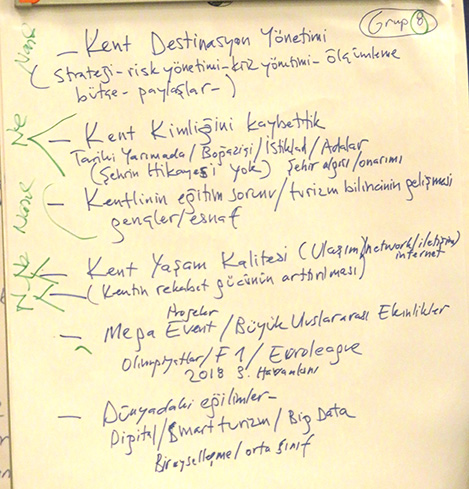 Grup 8
Nasıl
— Kent Destinasyon Yönetimi
(strateji - risk yönetimi - kriz yönetimi - ölçümleme
bütçe - paylaşlar - )
Ne
— Kent Kimliğini kaybettik
Tarihi Yarımada / Boğaziçi / İstiklal / Adalar
(Şehrin Hikayesi yok) Şehir algısı/onarımı
Nasıl
— Kentlinin eğitim sorunu / turizm bilincinin gelişmesi
gençler/esnaf
N-Ne
— Kent Yaşam Kalitesi (Ulaşım/network/iletişim/
internet
— (Kentin rekabet gücünün arttırılması)
Projeler
— Mega Event / Büyük Uluslararası Etkinlikler
Olimpiyatlar / F1 / Euroleague
2018 3. Havaalanı
— Dünyadaki eğilimler -
Digital / Smart turizm / Big Data
Bireyselleşme / orta sınıf